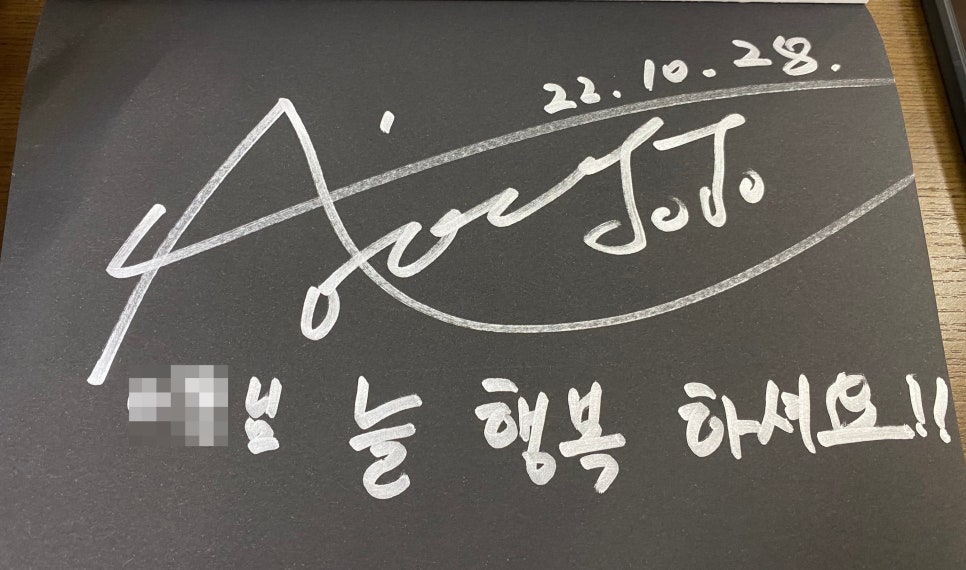 22.10.28.
JoJo
님 늘 행복 하세요!!